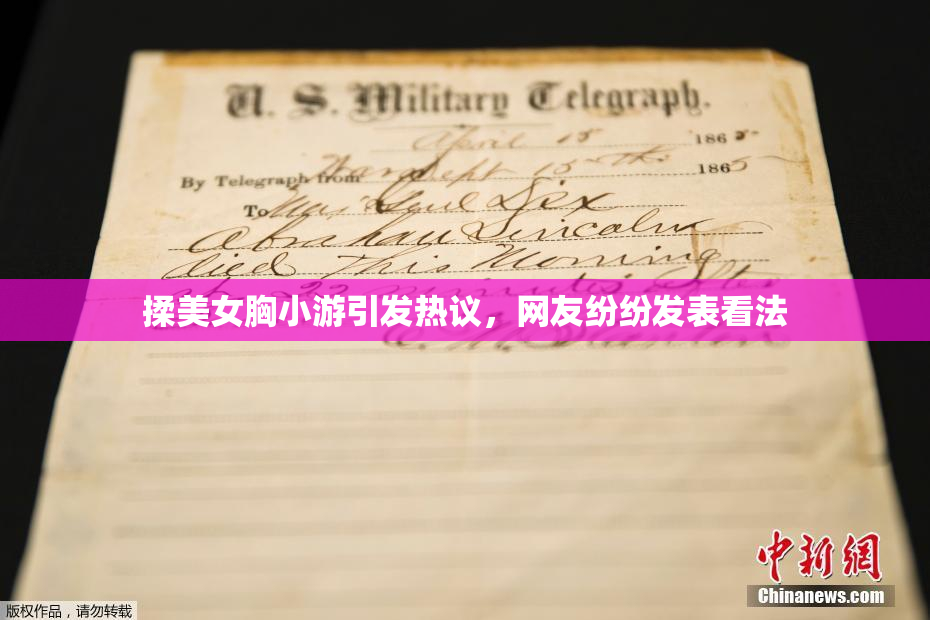 U. S. Military Telegraph.
April 15 1865
By Telegraph from War Dept 15th 1865
To Maj Genl Dix
Abraham Lincoln
died This Morning
at 22 minutes after
揉美女胸小游引发热议，网友纷纷发表看法
E. M. Stanton
中新网
Chinanews.com
版权作品，请勿转载